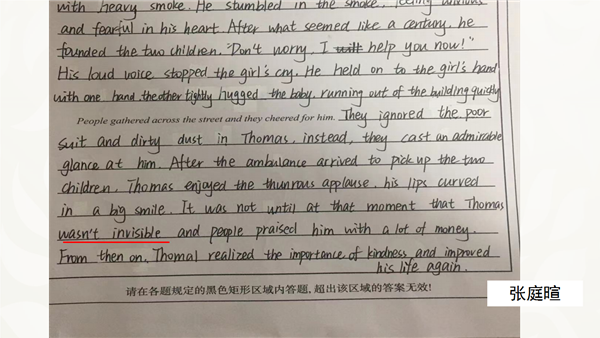 with heavy smoke. He stumbled in the smoke, feeling anxious
and fearful in his heart. After what seemed like a century, he
founded the two children. "Don't worry, I will help you now!"
His loud voice stopped the girl's cry. He held on to the girl's hand
with one hand, the other tightly hugged the baby, running out of the building quietly
People gathered across the street and they cheered for him. They ignored the poor
suit and dirty dust in Thomas, instead, they cast an admirable
glance at him. After the ambulance arrived to pick up the two
children, Thomas enjoyed the thunrous applause, his lips curved
in a big smile. It was not until at that moment that Thomas
wasn't invisible and people praised him with a lot of money.
From then on, Thomal realized the importance of kindness and improved
his life again.
请在各题规定的黑色矩形区域内答题,超出该区域的答案无效!
张庭暄